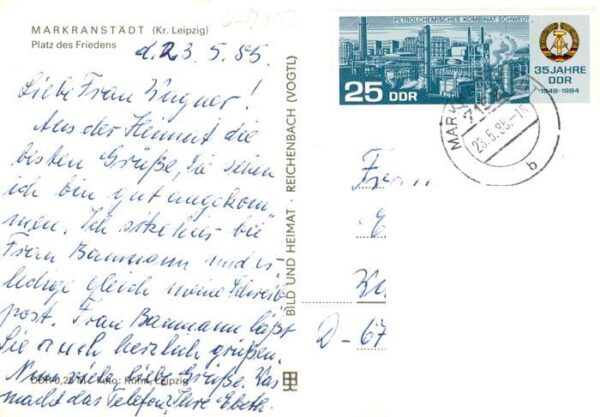 MARKRANSTÄDT (Kr. Leipzig)
Platz des Friedens
d. 23.5.85.
Liebe Frau Wagner!
Aus der Heimat die
besten Grüße, Sie sehen
ich bin gut angekom-
men. Ich sitze hier bei
Frau Baumann und er-
ledige gleich meine Schreib
post. Frau Baumann läßt
Sie auch herzlich grüßen.
Nun viele liebe Grüße. Was
macht das Telefon? Ihre
DDR 0,25 M · Foto: Kühn, Leipzig
BILD UND HEIMAT · REICHENBACH (VOGTL)
PETROLCHEMISCHES KOMBINAT SCHWEDT
25 DDR
35 JAHRE
DDR
1949-1984
MARK
715
23.5.85.-1
b
Fr
D-67